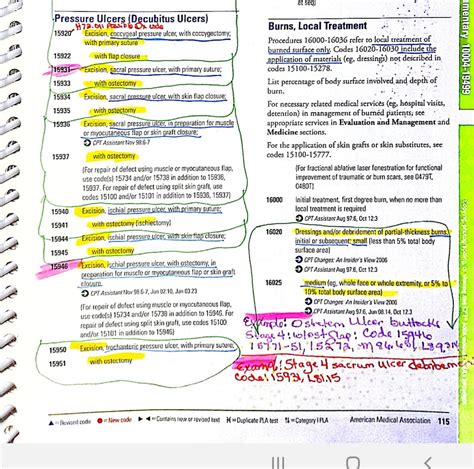 et seq)
Pressure Ulcers (Decubitus Ulcers)
15920 Excision, coccygeal pressure ulcer, with coccygectomy;
with primary suture
15922 with flap closure
15931 Excision, sacral pressure ulcer, with primary suture;
15933 with ostectomy
15934 Excision, sacral pressure ulcer, with skin flap closure;
15935 with ostectomy
15936 Excision, sacral pressure ulcer, in preparation for muscle
or myocutaneous flap or skin graft closure;
CPT Assistant Nov 98:6-7
15937 with ostectomy
(For repair of defect using muscle or myocutaneous flap,
use code(s) 15734 and/or 15738 in addition to 15936,
15937. For repair of defect using split skin graft, use
codes 15100 and/or 15101 in addition to 15936, 15937)
15940 Excision, ischial pressure ulcer, with primary suture;
15941 with ostectomy (ischiectomy)
15944 Excision, ischial pressure ulcer, with skin flap closure;
15945 with ostectomy
15946 Excision, ischial pressure ulcer, with ostectomy, in
preparation for muscle or myocutaneous flap or skin graft
closure
CPT Assistant Nov 98:6-7, Jun 02:10, Jun 03:23
(For repair of defect using muscle or myocutaneous flap,
use code(s) 15734 and/or 15738 in addition to 15946. For
repair of defect using split skin graft, use codes 15100
and/or 15101 in addition to 15946)
15950 Excision, trochanteric pressure ulcer, with primary suture;
15951 with ostectomy
Burns, Local Treatment
Procedures 16000-16036 refer to local treatment of
burned surface only. Codes 16020-16030 include the
application of materials (eg, dressings) not described in
codes 15100-15278.
List percentage of body surface involved and depth of
burn.
For necessary related medical services (eg, hospital visits,
detention) in management of burned patients, see
appropriate services in Evaluation and Management and
Medicine sections.
For the application of skin grafts or skin substitutes, see
codes 15100-15777.
(For fractional ablative laser fenestration for functional
improvement of traumatic or burn scars, see 0479T,
0480T)
16000 Initial treatment, first degree burn, when no more than
local treatment is required
CPT Assistant Aug 97:6, Oct 12:3
16020 Dressings and/or debridement of partial-thickness burns,
initial or subsequent; small (less than 5% total body
surface area)
CPT Changes: An Insider's View 2006
CPT Assistant Aug 97:6, Oct 12:3
16025 medium (eg, whole face or whole extremity, or 5% to
10% total body surface area)
CPT Changes: An Insider's View 2006
CPT Assistant Aug 97:6, Jun 08:14, Oct 12:3
Ulcer buttocks
Stage 4: Code 15946
Example: Stage 4 sacrum ulcer
Code: 15931, L89.15
▲=Revised code ●=New code ▶◀=Contains new or revised text ✕=Duplicate PLA test ⇅=Category I PLA American Medical Association 115